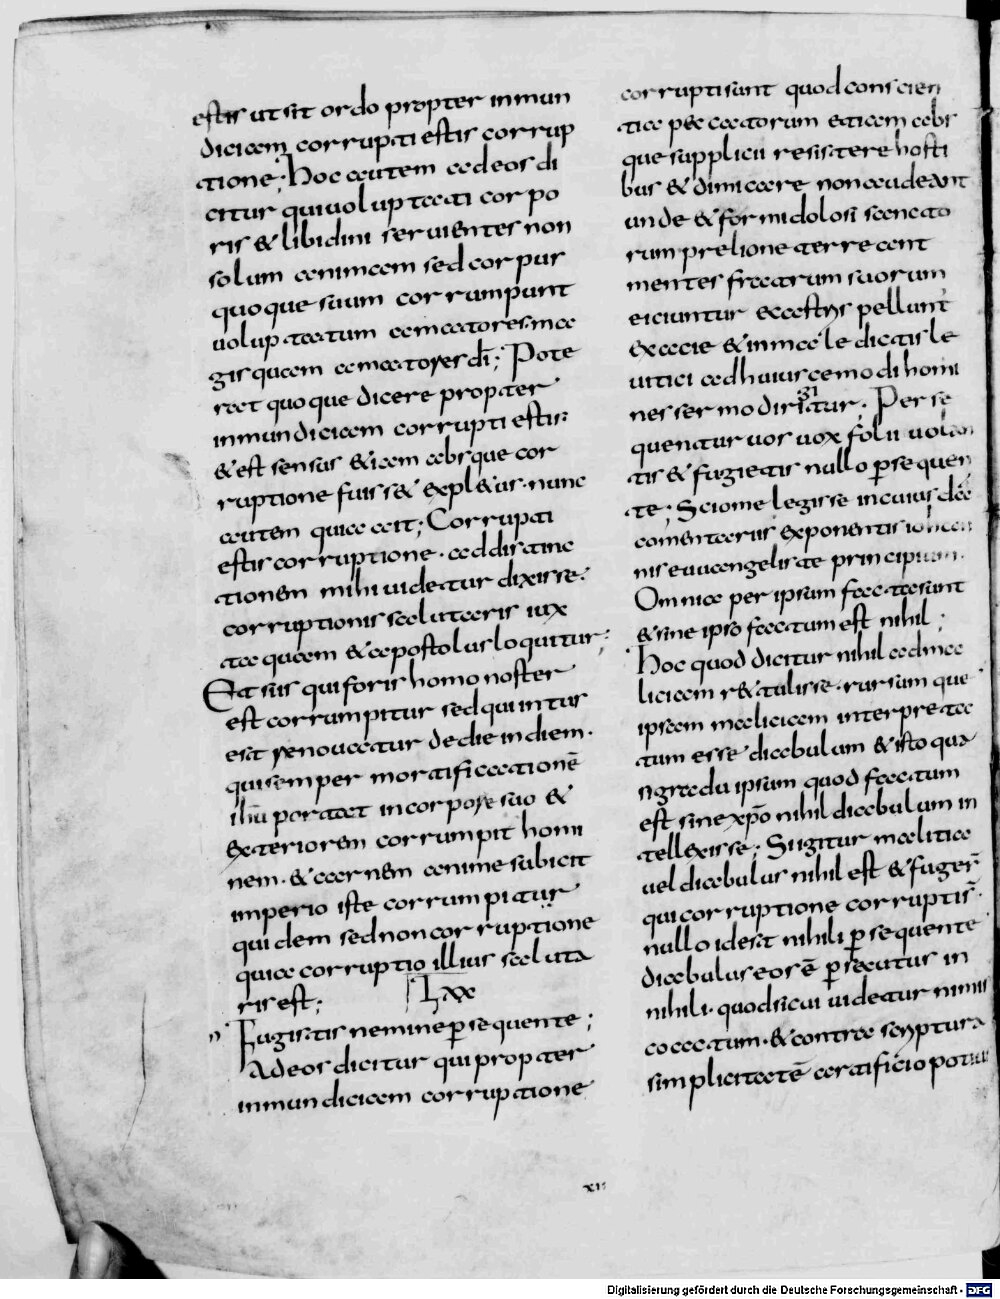 estis ut sit ordo propter inmun
diciam corrupti estis corrup
tione; hoc autem ad eos di
citur qui voluptati corpo
ris & libidini servientes non
solum animam sed corpus
quoque suum corrumpunt
voluptatum amatores ma
gis quam amatores di; Pote
rat quoque dicere propter
inmundiciam corrupti estis:
& est sensus & iam absque cor
ruptione fuiss& expl&us. nunc
autem quia ait; Corrupti
estis corruptione. ad distinc
tionem mihi videtur dixisse.
corruptionis salutaris iux
ta quam & apostolus loquitur;
Etsi is qui foris homo noster
est corrumpitur sed qui intus
est renovatur de die in diem.
qui semper mortificationē
ihū portat in corpore suo &
exteriorem corrumpit homi
nem. & carnem anime subicit
imperio iste corrumpitur
quidem sed non corruptione
quia corruptio illius saluta
ris est; Lxx
Fugistis nemine psequente;
Ad eos dicitur qui propter
inmundiciam corruptione
corrupti sunt quod conscien
tia peccatorum etiam abs
que supplicii resistere hosti
bus & dimicare non audeant
unde & formidolosi sanato
rum prelione terreant
mentes fratrum suorum
eiciuntur & castris pelluntur
ex acie & in male dictis le
vitici ad huiuscemodi homi
nes sermo dirigitur; Perse
quentur vos vox folii volan
tis & fugietis nullo psequen
te; Scio me legisse in cuiusdā
comentariis exponentis iohan
nis euuangeliste principium.
Omnia per ipsum facta sunt
& sine ipso factum est nihil;
hoc quod dicitur nihil ad ma
liciam r&tulisse. rursum que
ipsam maliciam interpreta
tum esse diabulum & isto qua
si gradu ipsum quod factum
est sine xpo nihil diabulum in
tellexisse; Si igitur malitia
vel diabulus nihil est & fuger̄
qui corruptione corrupti s̄.
nullo id est nihili psequente
diabulus eos ē psecutus in
nihili. quod si cui videtur nimis
coactum. & contra scriptura
simplicitatē artificio potius
xii
Digitalisierung gefördert durch die Deutsche Forschungsgemeinschaft - DFG